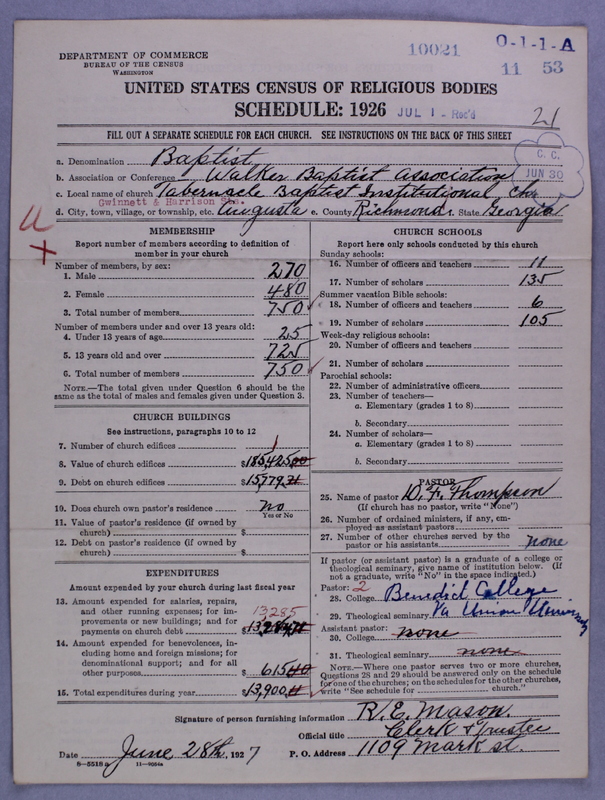 DEPARTMENT OF COMMERCE
BUREAU OF THE CENSUS
WASHINGTON
10021
O-1-1-A
11 53
UNITED STATES CENSUS OF RELIGIOUS BODIES
SCHEDULE: 1926
JUL 1 - Rec'd
21
FILL OUT A SEPARATE SCHEDULE FOR EACH CHURCH. SEE INSTRUCTIONS ON THE BACK OF THIS SHEET
C. C.
JUN 30
a. Denomination Baptist
b. Association or Conference Walker Baptist Association
c. Local name of church Tabernacle Baptist Institutional Chu
Gwinnett & Harrison Sts.
d. City, town, village, or township, etc. Augusta e. County Richmond f. State Georgia
MEMBERSHIP
Report number of members according to definition of
member in your church
Number of members, by sex:
1. Male 270
2. Female 480
3. Total number of members 750
Number of members under and over 13 years old:
4. Under 13 years of age 25
5. 13 years old and over 725
6. Total number of members 750
NOTE.—The total given under Question 6 should be the
same as the total of males and females given under Question 3.
CHURCH BUILDINGS
See instructions, paragraphs 10 to 12
7. Number of church edifices 1
8. Value of church edifices $185,425 00
9. Debt on church edifices $15,779.21
10. Does church own pastor's residence? No
Yes or No
11. Value of pastor's residence (if owned by
church) $
12. Debt on pastor's residence (if owned by
church) $
EXPENDITURES
Amount expended by your church during last fiscal
year
13. Amount expended for salaries, repairs,
and other running expenses; for im-
provements or new buildings; and for
13285
payments on church debt $
14. Amount expended for benevolences, in-
cluding home and foreign missions; for
denominational support; and for all
other purposes $615 40
15. Total expenditures during year $13,900
CHURCH SCHOOLS
Report here only schools conducted by this church
Sunday schools:
16. Number of officers and teachers 11
17. Number of scholars 135
Summer vacation Bible schools:
18. Number of officers and teachers 6
19. Number of scholars 105
Week-day religious schools:
20. Number of officers and teachers
21. Number of scholars
Parochial schools:
22. Number of administrative officers
23. Number of teachers—
a. Elementary (grades 1 to 8)
b. Secondary
24. Number of scholars—
a. Elementary (grades 1 to 8)
b. Secondary
PASTOR
25. Name of pastor D. F. Thompson
(If church has no pastor, write "None")
26. Number of ordained ministers, if any, em-
ployed as assistant pastors
27. Number of other churches served by the
pastor or his assistants none
If pastor (or assistant pastor) is a graduate of a college or
theological seminary, give name of institution below. (If
not a graduate, write "No" in the space indicated.)
Pastor: 2
28. College Benedict College
29. Theological seminary Va Union University
Assistant pastor:
30. College none
31. Theological seminary none
NOTE.—Where one pastor serves two or more churches,
Questions 28 and 29 should be answered only on the schedule
for one of the churches; on the schedules for the other churches,
write "See schedule for church."
Signature of person furnishing information R. E. Mason.
Official title Clerk & Trustee
Date June 28th, 1927 P. O. Address 1109 Mark st.
8—5518 a 11—9664a